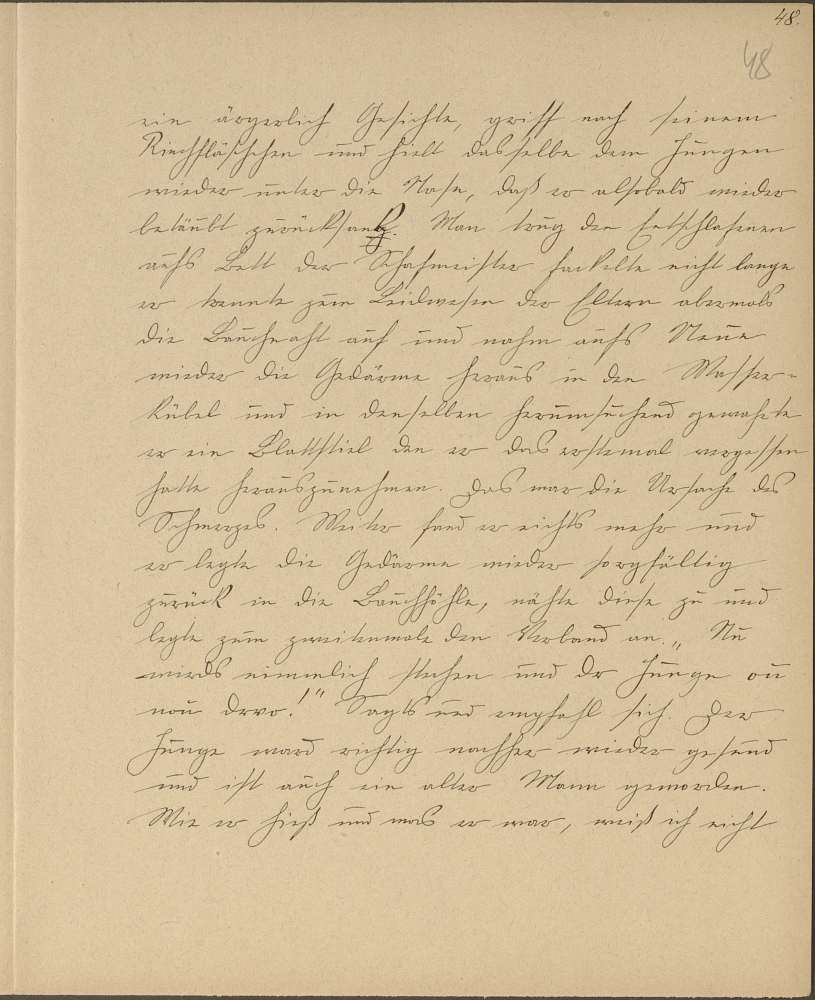 48.
48
ein ärgerlich Gesichte, griff nach seinem
Riechfläschchen und hielt dasselbe dem Jungen
wieder unter die Nase, daß er alsobald wieder
betäubt zurücksank. Man trug den Entschlafenen
aufs Bett der Schafmeister fackelte nicht lange
er trennte zum Leidwesen der Eltern abermals
die Bauchnaht auf und nahm aufs Neue
wieder die Gedärme heraus in den Wasser-
kübel und in denselben herumsuchend gewahrte
er ein Blattstiel den er das erstemal vergessen
hatte herauszunehmen. Das war die Ursache des
Schmerzes. Weiter fand er nichts mehr und
er legte die Gedärme wieder sorgfältig
zurück in die Bauchhöhle, nähte diese zu und
legte zum zweitenmale den Verband an. „Nu
wirds nimmlich stechen und dr Junge
drvo!“ Sagts und empfahl sich. Der
Junge ward richtig nachher wieder gesund
und ist auch ein alter Mann geworden.
Wie er hieß und was er war, weiß ich nicht